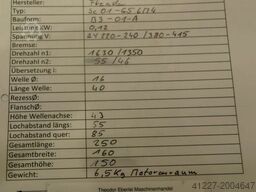 Hersteller:
Type: Sc 01-65 6/14
Bauform: B3-01-A
Leistung KW: 0,12
Spannung V: ΔY 220-240/380-415
Bremse:
Drehzahl n1: 1630/1350
Drehzahl n2: 55/46
Übersetzung i:
Welle Ø: 16
Länge Welle: 40
RezessØ:
FlanschØ:
Höhe Wellenachse: 43
Lochabstand längs: 55
Lochabstand quer: 85
Gesamtlänge: 250
Gesamtbreite: 160
Gesamthöhe: 150
Gewicht: 6,5 kg Motorenraum
Theodor Eberlei Maschinenhandel
41227-2004647